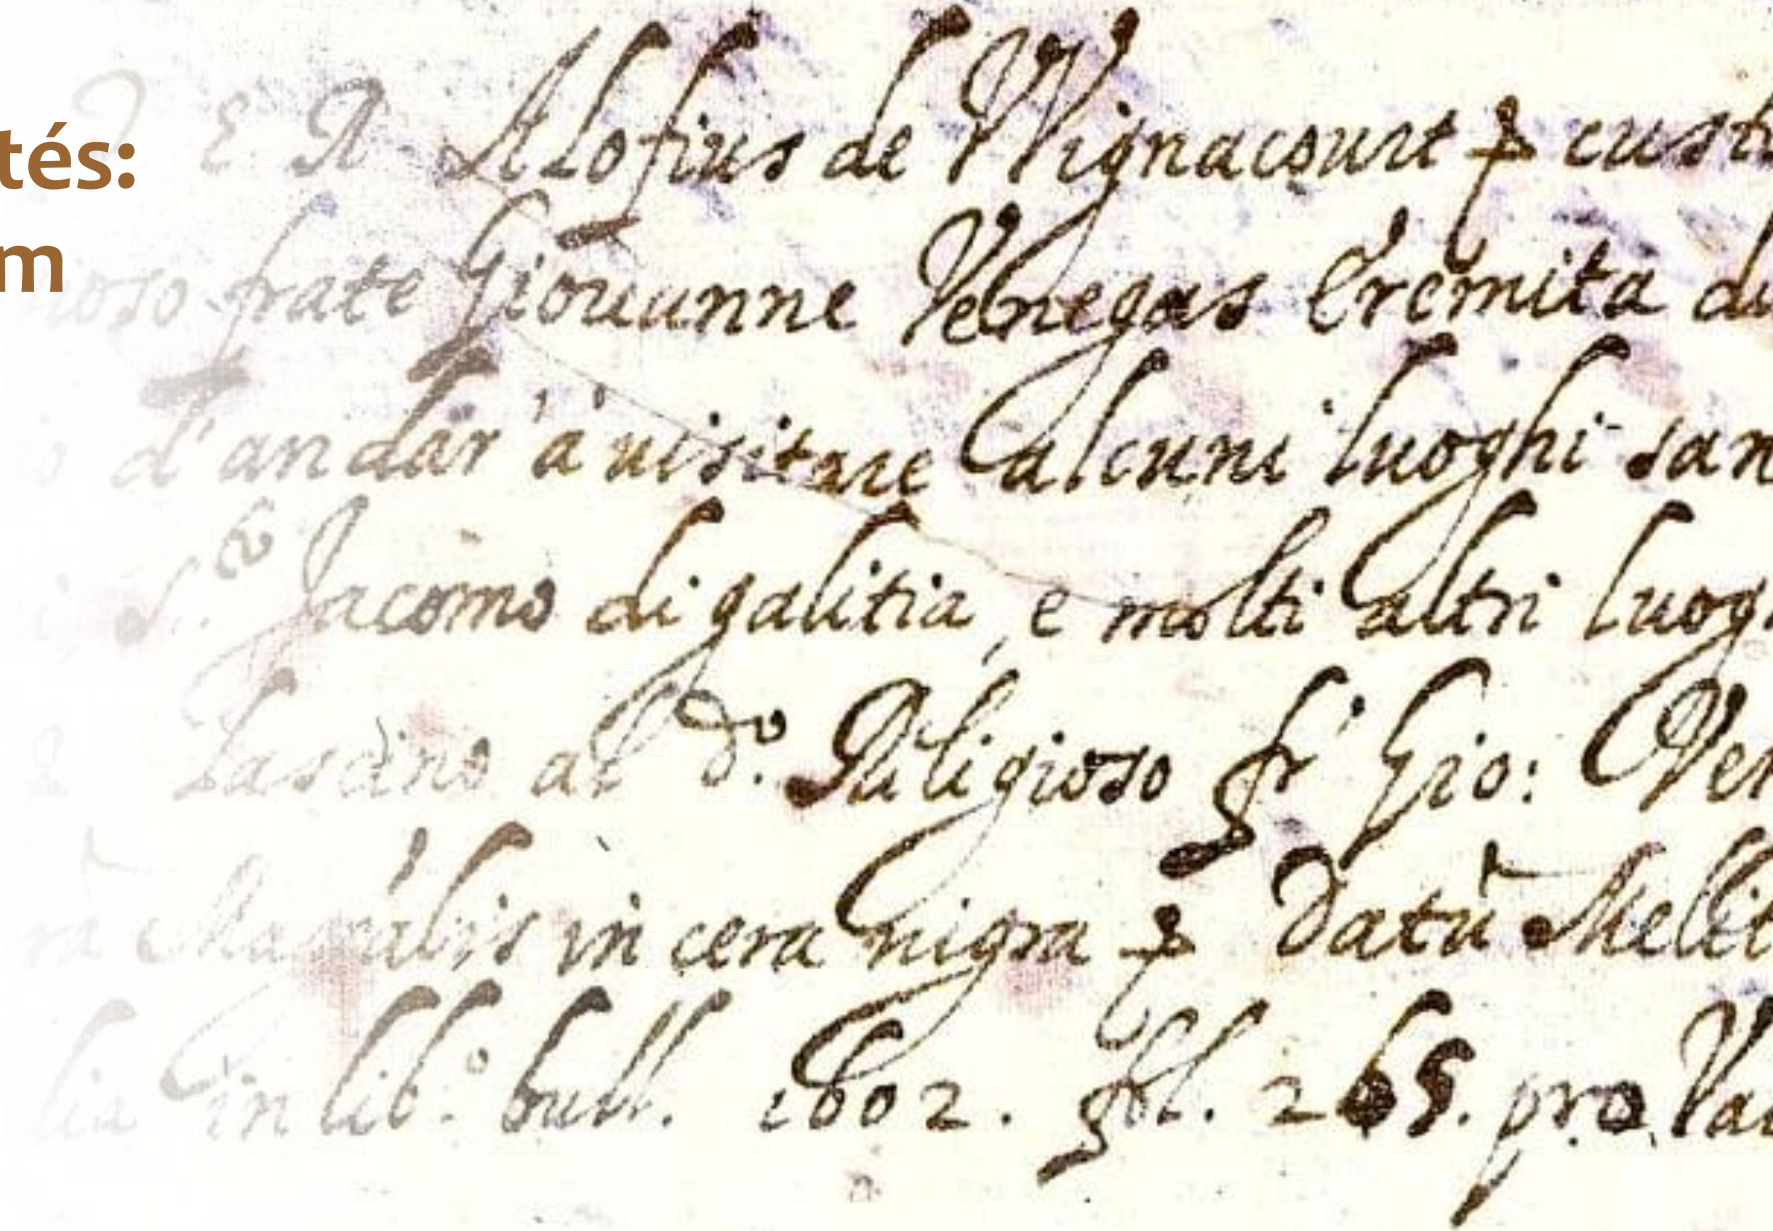 tés:
m
F E R Alofius de Wignacourt p custo
ioso frate Giouanne Venegas Eremita di
io d'andar à uisitare alcuni luoghi san
i, S.to Jacomo di galitia, e molti altri luogh
Lascino al d.o Religioso fr' Gio: Ven
ra Magralis in cera nigra p Datũ Melit
lia in lib.o bull. 1602. fol. 265. pro Va